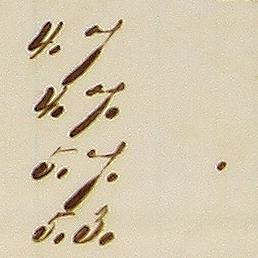 4. 7
4. 7.
5. 7.
5. 3.